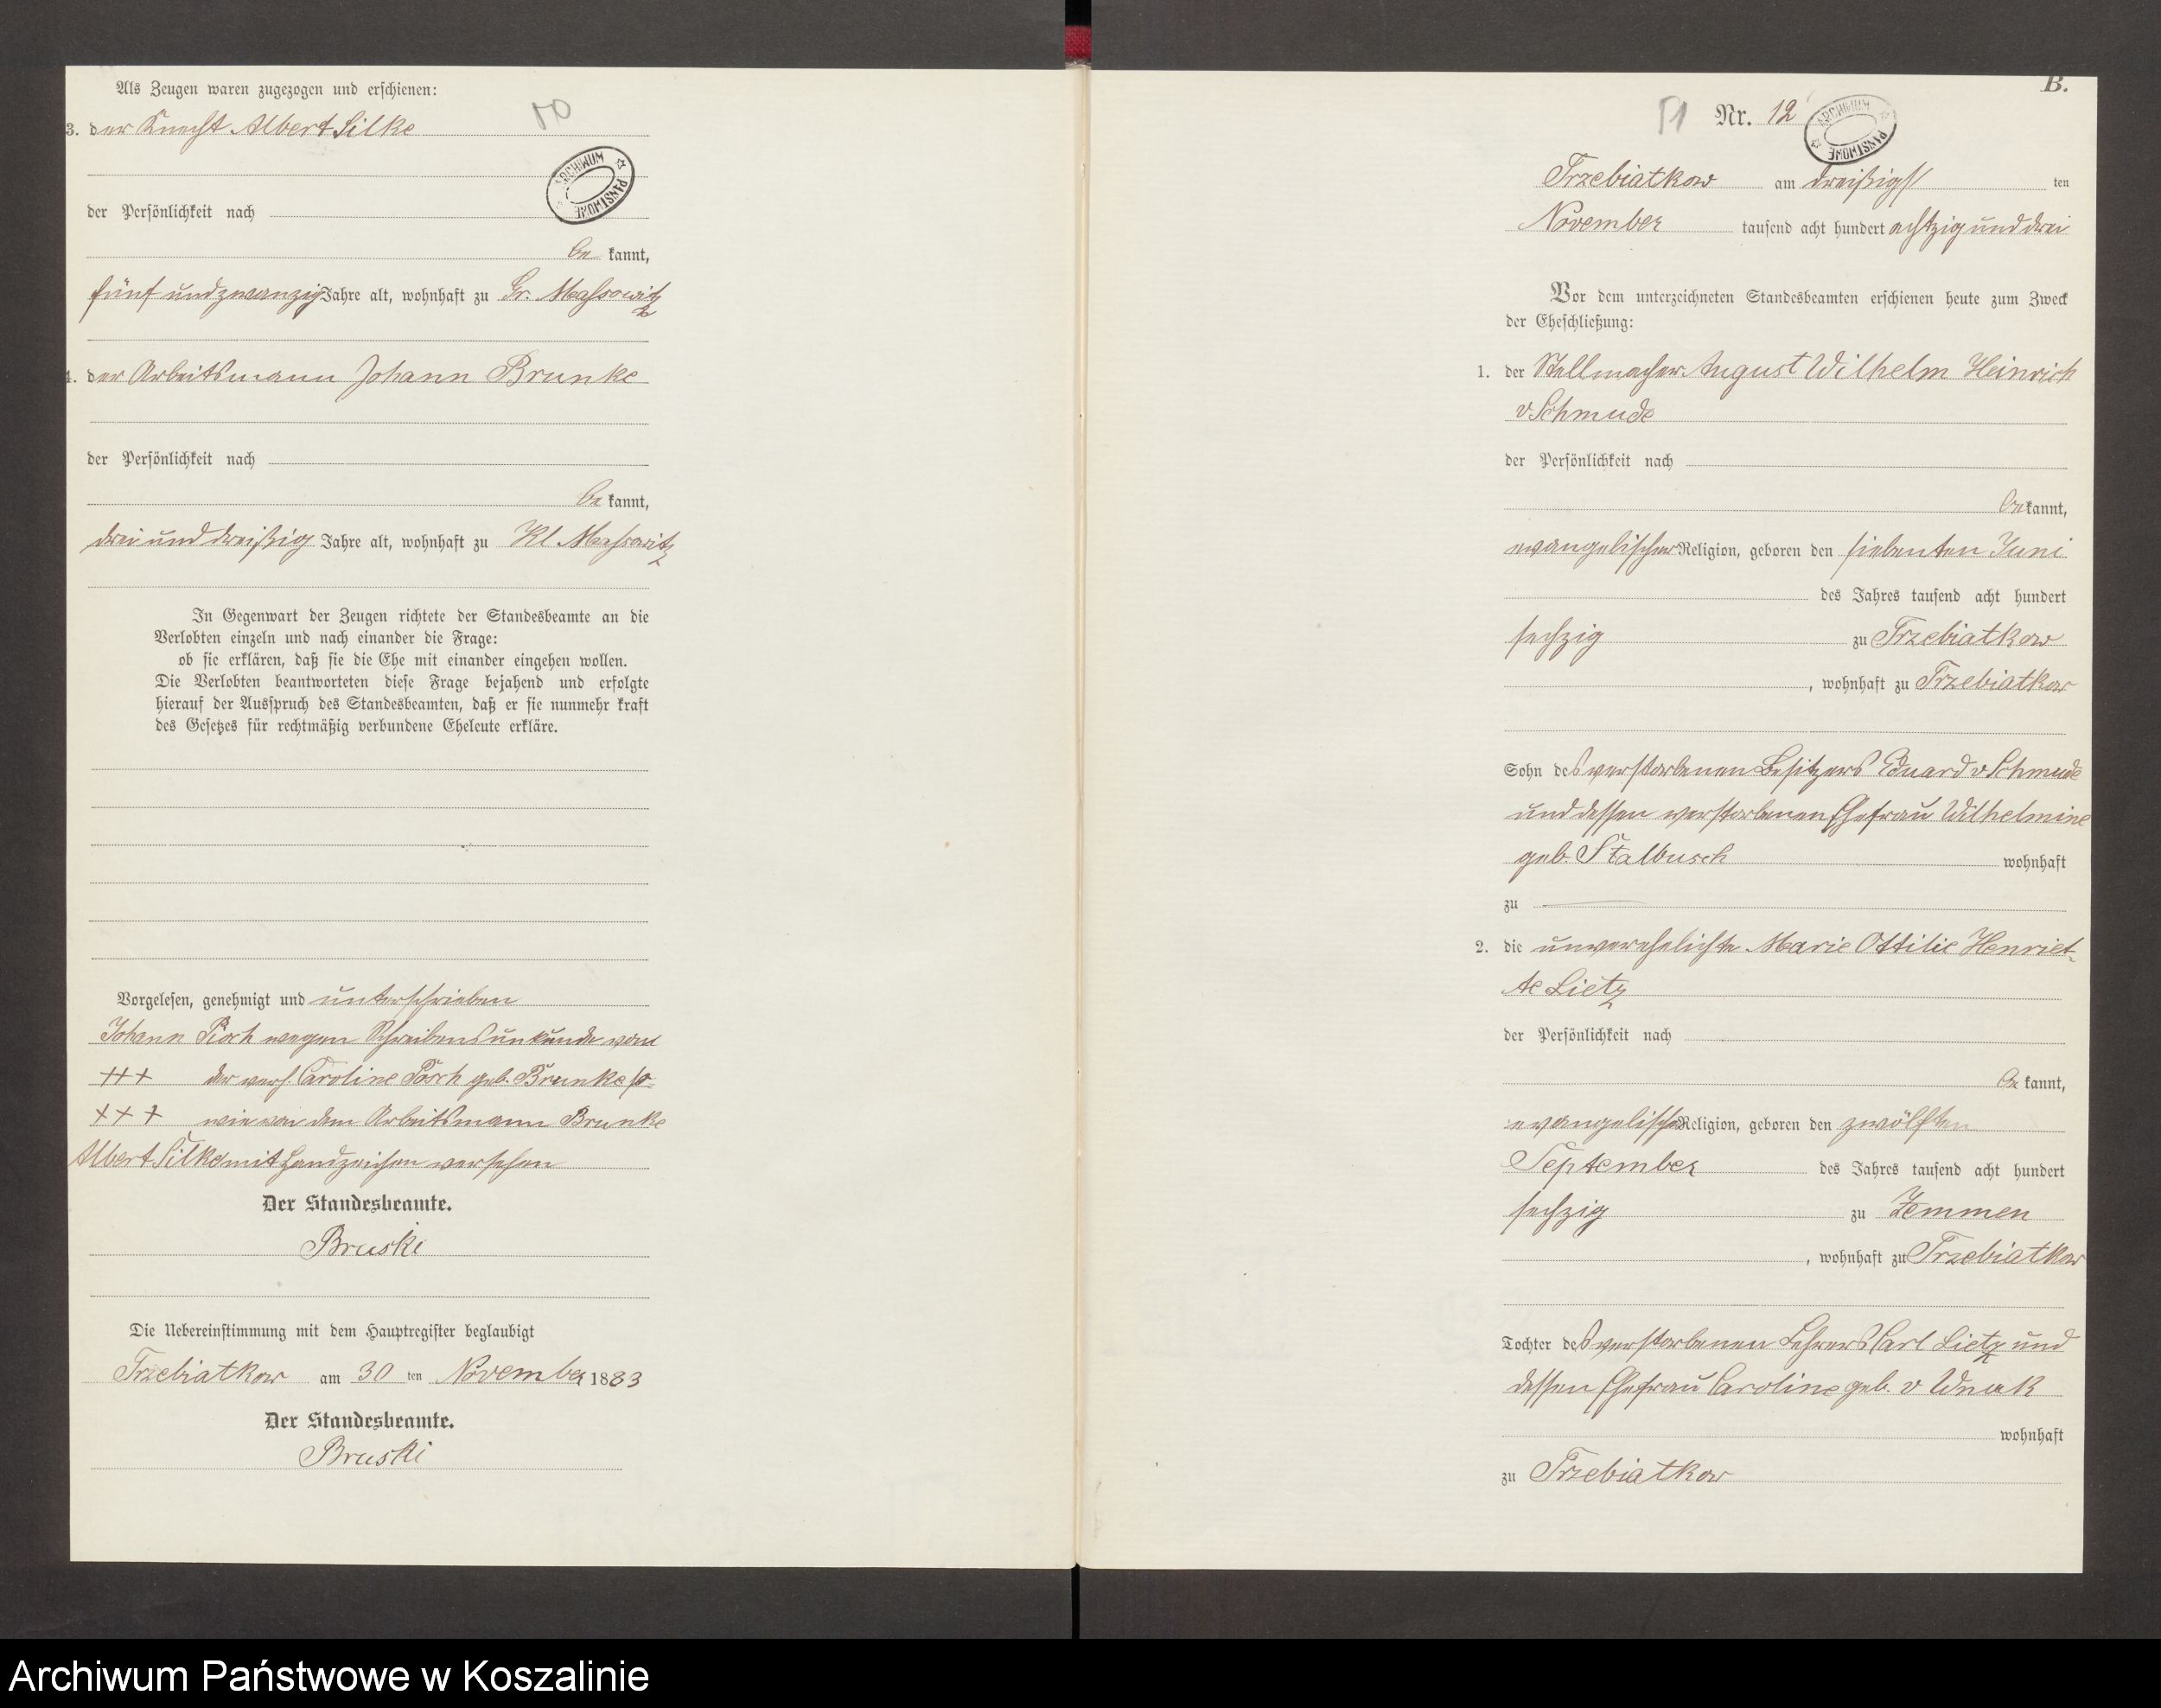 Als Zeugen waren zugezogen und erschienen:
50
3. der Knecht Albert Silke
ARCHIWUM PAŃSTWOWE
der Persönlichkeit nach
be kannt,
fünf und zwanzig Jahre alt, wohnhaft zu Gr. Massowitz
4. der Arbeitsmann Johann Brunke
der Persönlichkeit nach
be kannt,
drei und dreißig Jahre alt, wohnhaft zu Kl Massowitz
In Gegenwart der Zeugen richtete der Standesbeamte an die
Verlobten einzeln und nach einander die Frage:
ob sie erklären, daß sie die Ehe mit einander eingehen wollen.
Die Verlobten beantworteten diese Frage bejahend und erfolgte
hierauf der Ausspruch des Standesbeamten, daß er sie nunmehr kraft
des Gesetzes für rechtmäßig verbundene Eheleute erkläre.
Vorgelesen, genehmigt und unterschrieben
Johann wegen Schreibensunkunde von
+++ der Caroline geb. Brunke so-
+++ wie von dem Arbeitsmann Brunke
Albert Silke mit Handzeichen versehen
Der Standesbeamte.
Bruski
Die Uebereinstimmung mit dem Hauptregister beglaubigt
Trzebiatkow am 30 ten November 1883
Der Standesbeamte.
Bruski
B.
51 Nr. 12
ARCHIWUM PAŃSTWOWE
Trzebiatkow am dreißigs ten
November tausend acht hundert achtzig und drei
Vor dem unterzeichneten Standesbeamten erschienen heute zum Zweck
der Eheschließung:
1. der Stellmacher August Wilhelm Heinrich
v Schmude
der Persönlichkeit nach
be kannt,
evangelischer Religion, geboren den siebenten Juni
des Jahres tausend acht hundert
sechzig zu Trzebiatkow
, wohnhaft zu Trzebiatkow
Sohn des verstorbenen Besitzers Eduard v Schmude
und dessen verstorbenen Ehefrau Wilhelmine
geb. Stalbusch wohnhaft
zu
2. die unverehelichte Marie Ottilie Henriet-
te Lietz
der Persönlichkeit nach
be kannt,
evangelischer Religion, geboren den zwölften
September des Jahres tausend acht hundert
sechzig zu Zemmen
, wohnhaft zu Trzebiatkow
Tochter des verstorbenen Lehrers Carl Lietz und
dessen Ehefrau Caroline geb. v Wnuk
wohnhaft
zu Trzebiatkow
Archiwum Państwowe w Koszalinie